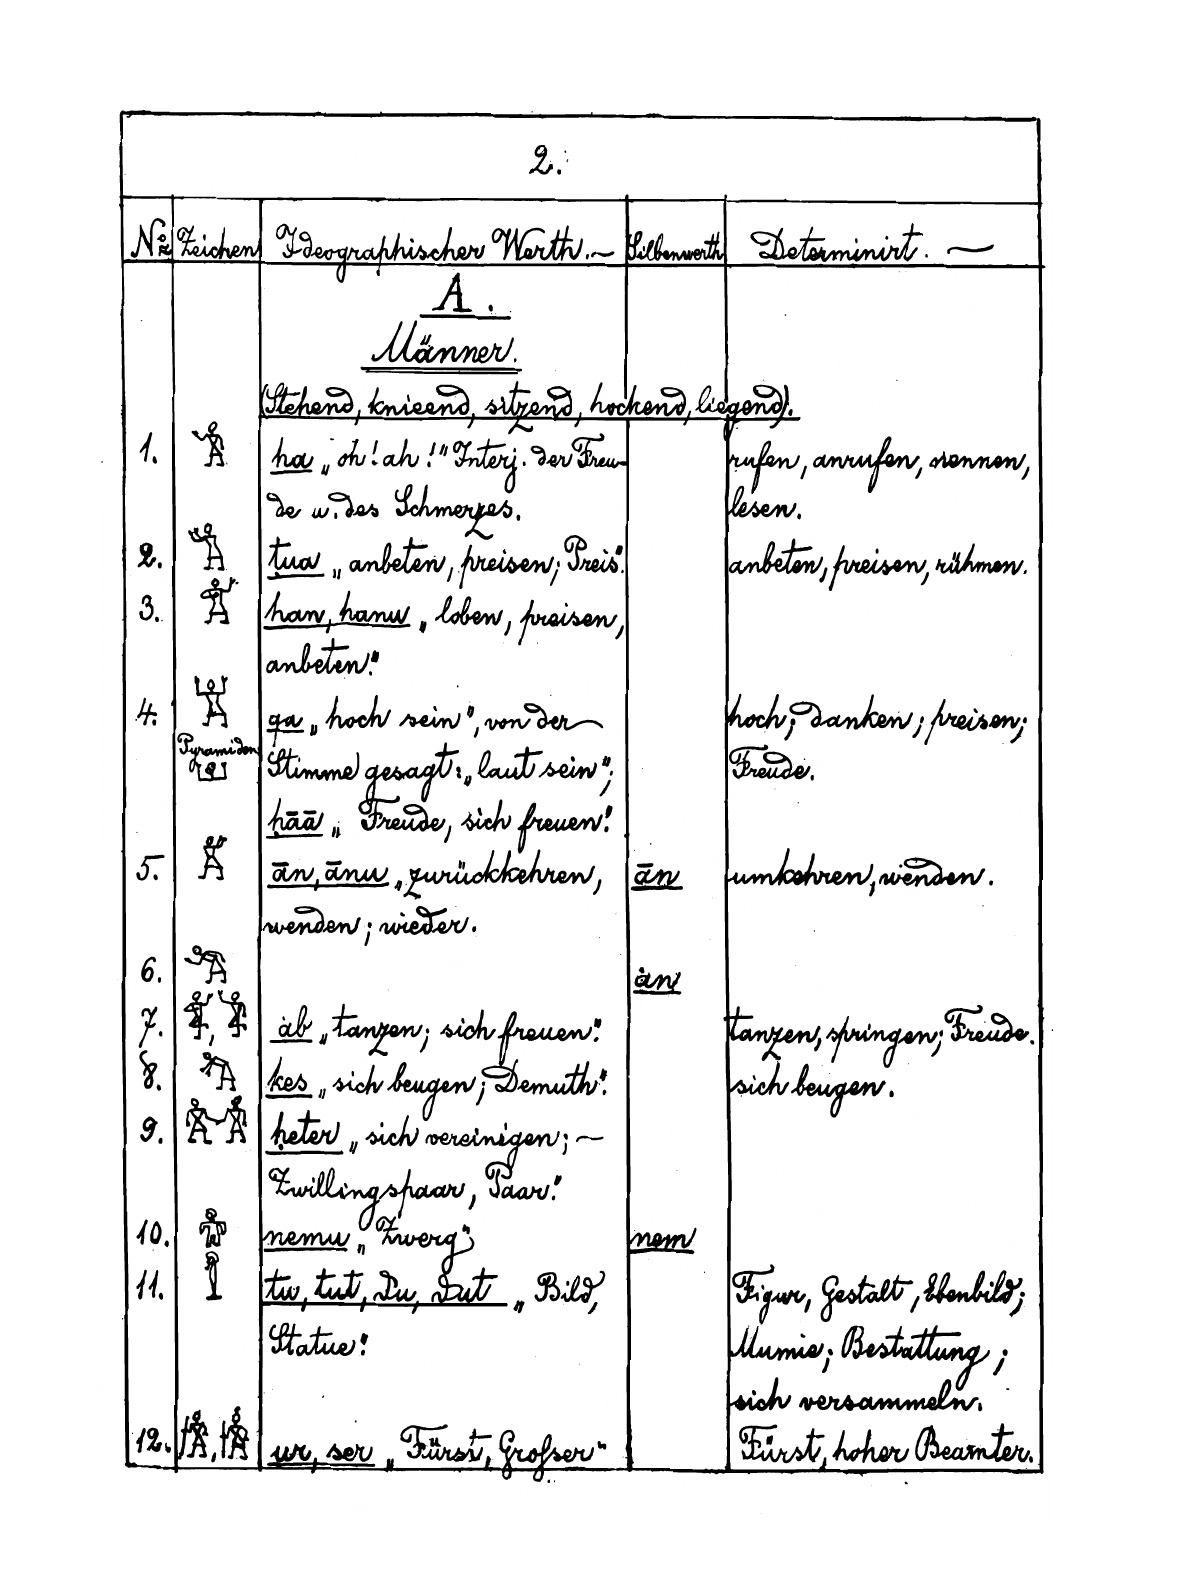 2.
No. Zeichen Ideographischer Werth. Silbenwerth Determinirt.
A.
Männer.
(Stehend, knieend, sitzend, hockend, liegend).
1. ha „oh! ah!" Interj. der Freu- rufen, anrufen, nennen,
de u. des Schmerzes. lesen.
2. ṭua „anbeten, preisen; Preis". anbeten, preisen, rühmen.
3. han, hanu „loben, preisen,
anbeten."
4. qa „hoch sein", von der hoch; danken; preisen;
Pyramiden Stimme gesagt: „laut sein"; Freude.
hāā „Freude, sich freuen."
5. ān, ānu „zurückkehren, ān umkehren, wenden.
wenden; wieder.
6. ȧn
7. ȧb „tanzen; sich freuen." tanzen, springen; Freude.
8. kes „sich beugen; Demuth". sich beugen.
9. ḥeter „sich vereinigen;
Zwillingspaar, Paar."
10. nemu „Zwerg"; nem
11. tu, tut, Du, Dut „Bild, Figur, Gestalt, Ebenbild;
Statue." Mumie; Bestattung;
sich versammeln.
12. ur, ser „Fürst, Grosser" Fürst, hoher Beamter.